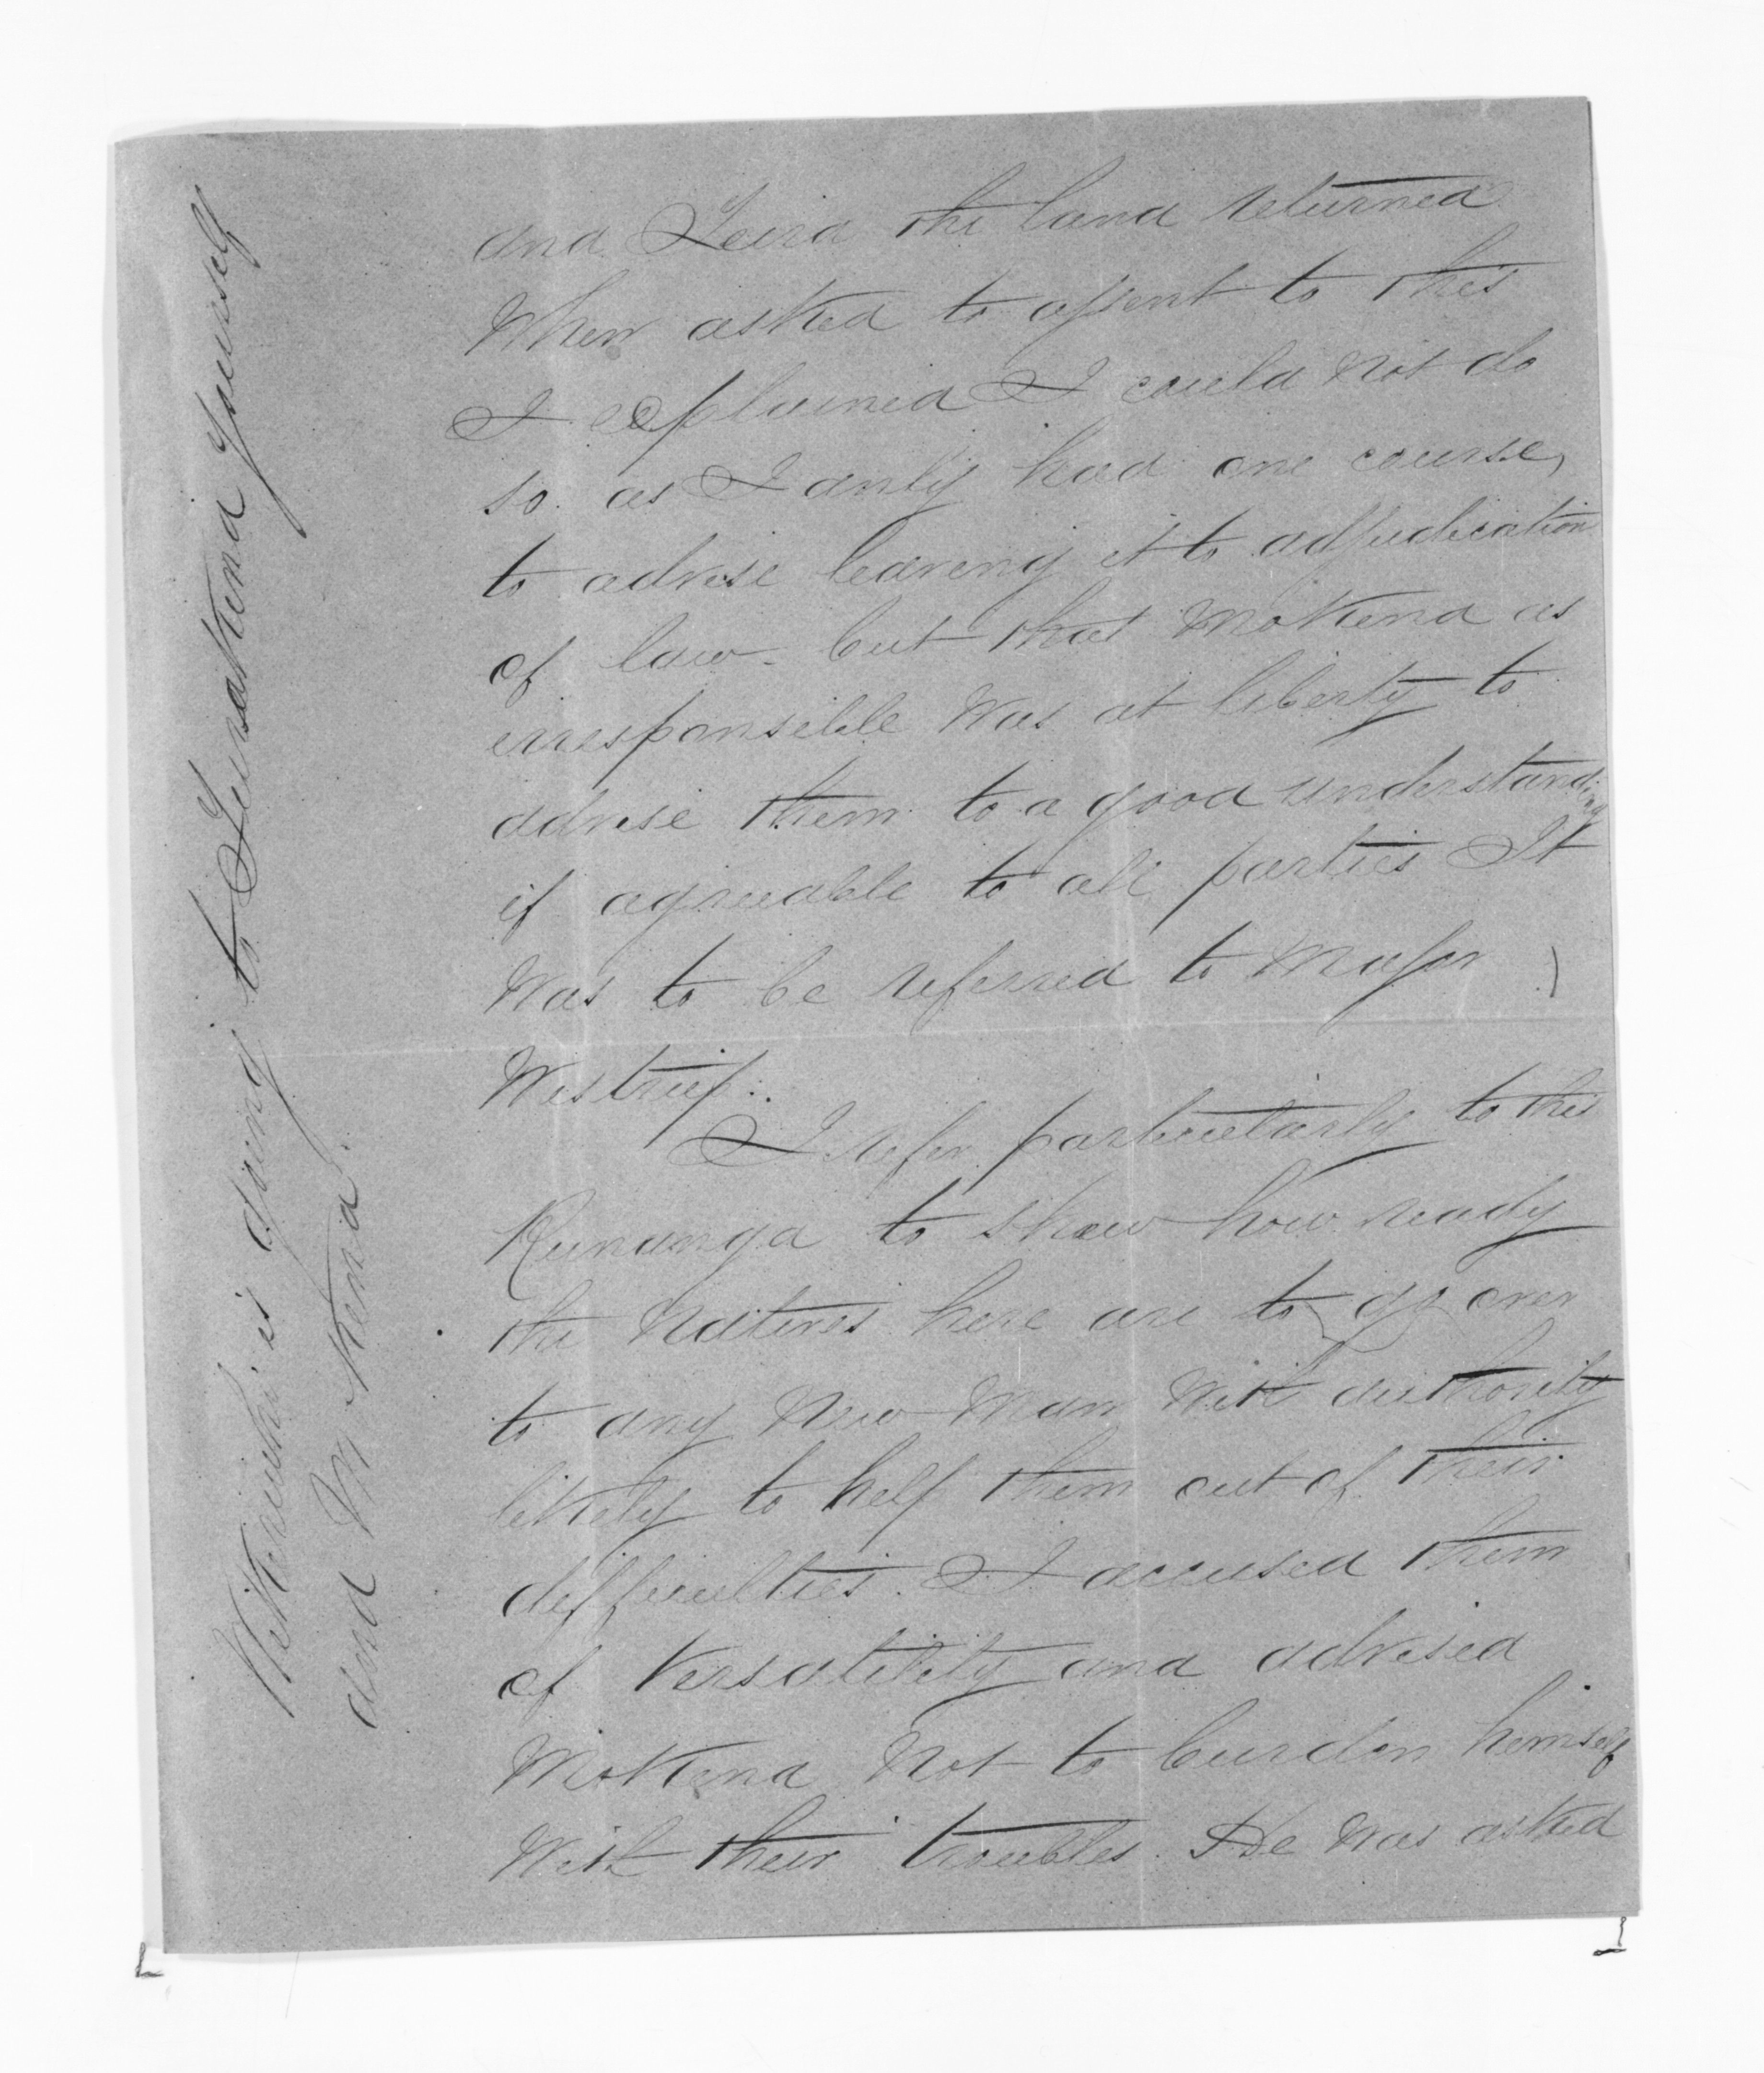 and Teira the land returned
When asked to assent to this
I explained I could not do
so as I only had one course,
to advise leaving it to adjudication
of law. but that Mokena as
irresponsible was at liberty to
advise them to a good understanding
if agreeable to all parties It
was to be referred to Major
Westrup.
I refer particularly to this
Runanga to shew how ready
the Natives here are to go over
to any new man with authority
likely to help them out of their
difficulties. I accused them
of versatility and advised
Mokena not to burden himself
with their troubles. He was asked
is going to Turakina Yourself
and Mokena.